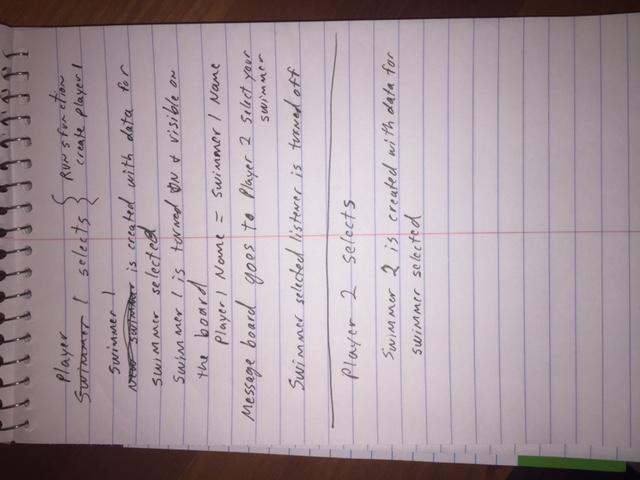 Player
Swimmer 1 selects { Runs function
create player 1
Swimmer 1
New swimmer is created with data for
swimmer selected
Swimmer 1 is turned ON & visible on
the board
Player 1 Name = Swimmer 1 Name
Message board goes to Player 2 Select your
swimmer
Swimmer selected listener is turned off
Player 2 selects
Swimmer 2 is created with data for
swimmer selected